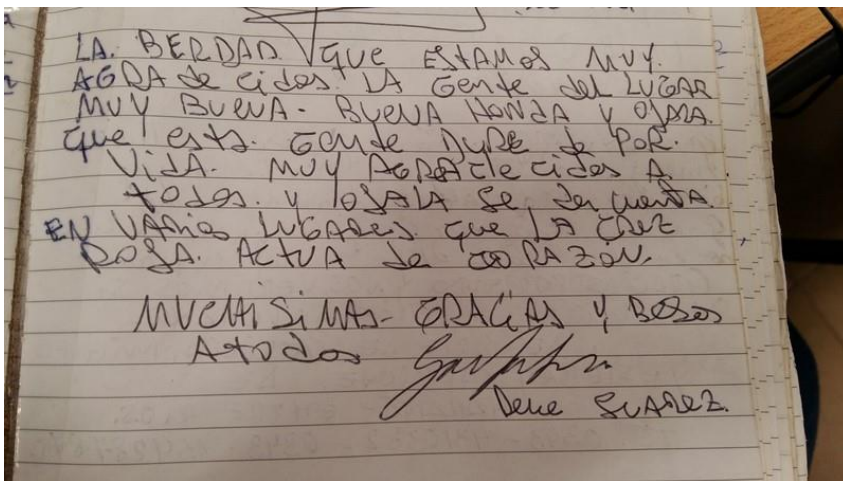 LA. BERDAD. QUE ESTAMOS MUY.
AGRA de cidos. LA Gente del LUGAR
MUY BUENA - BUENA HONDA Y OJALA.
que esta. Gente DURE de POR.
VidA. MUY AGRA de cidos A.
todos. y OJALA Se den cuenta.
EN VARios LUGARes que LA CRUZ
ROJA. ACTUA de CORAZÓN.
MUCHISIMAS - GRACIAS Y BESOS
A todos
SUAREZ.